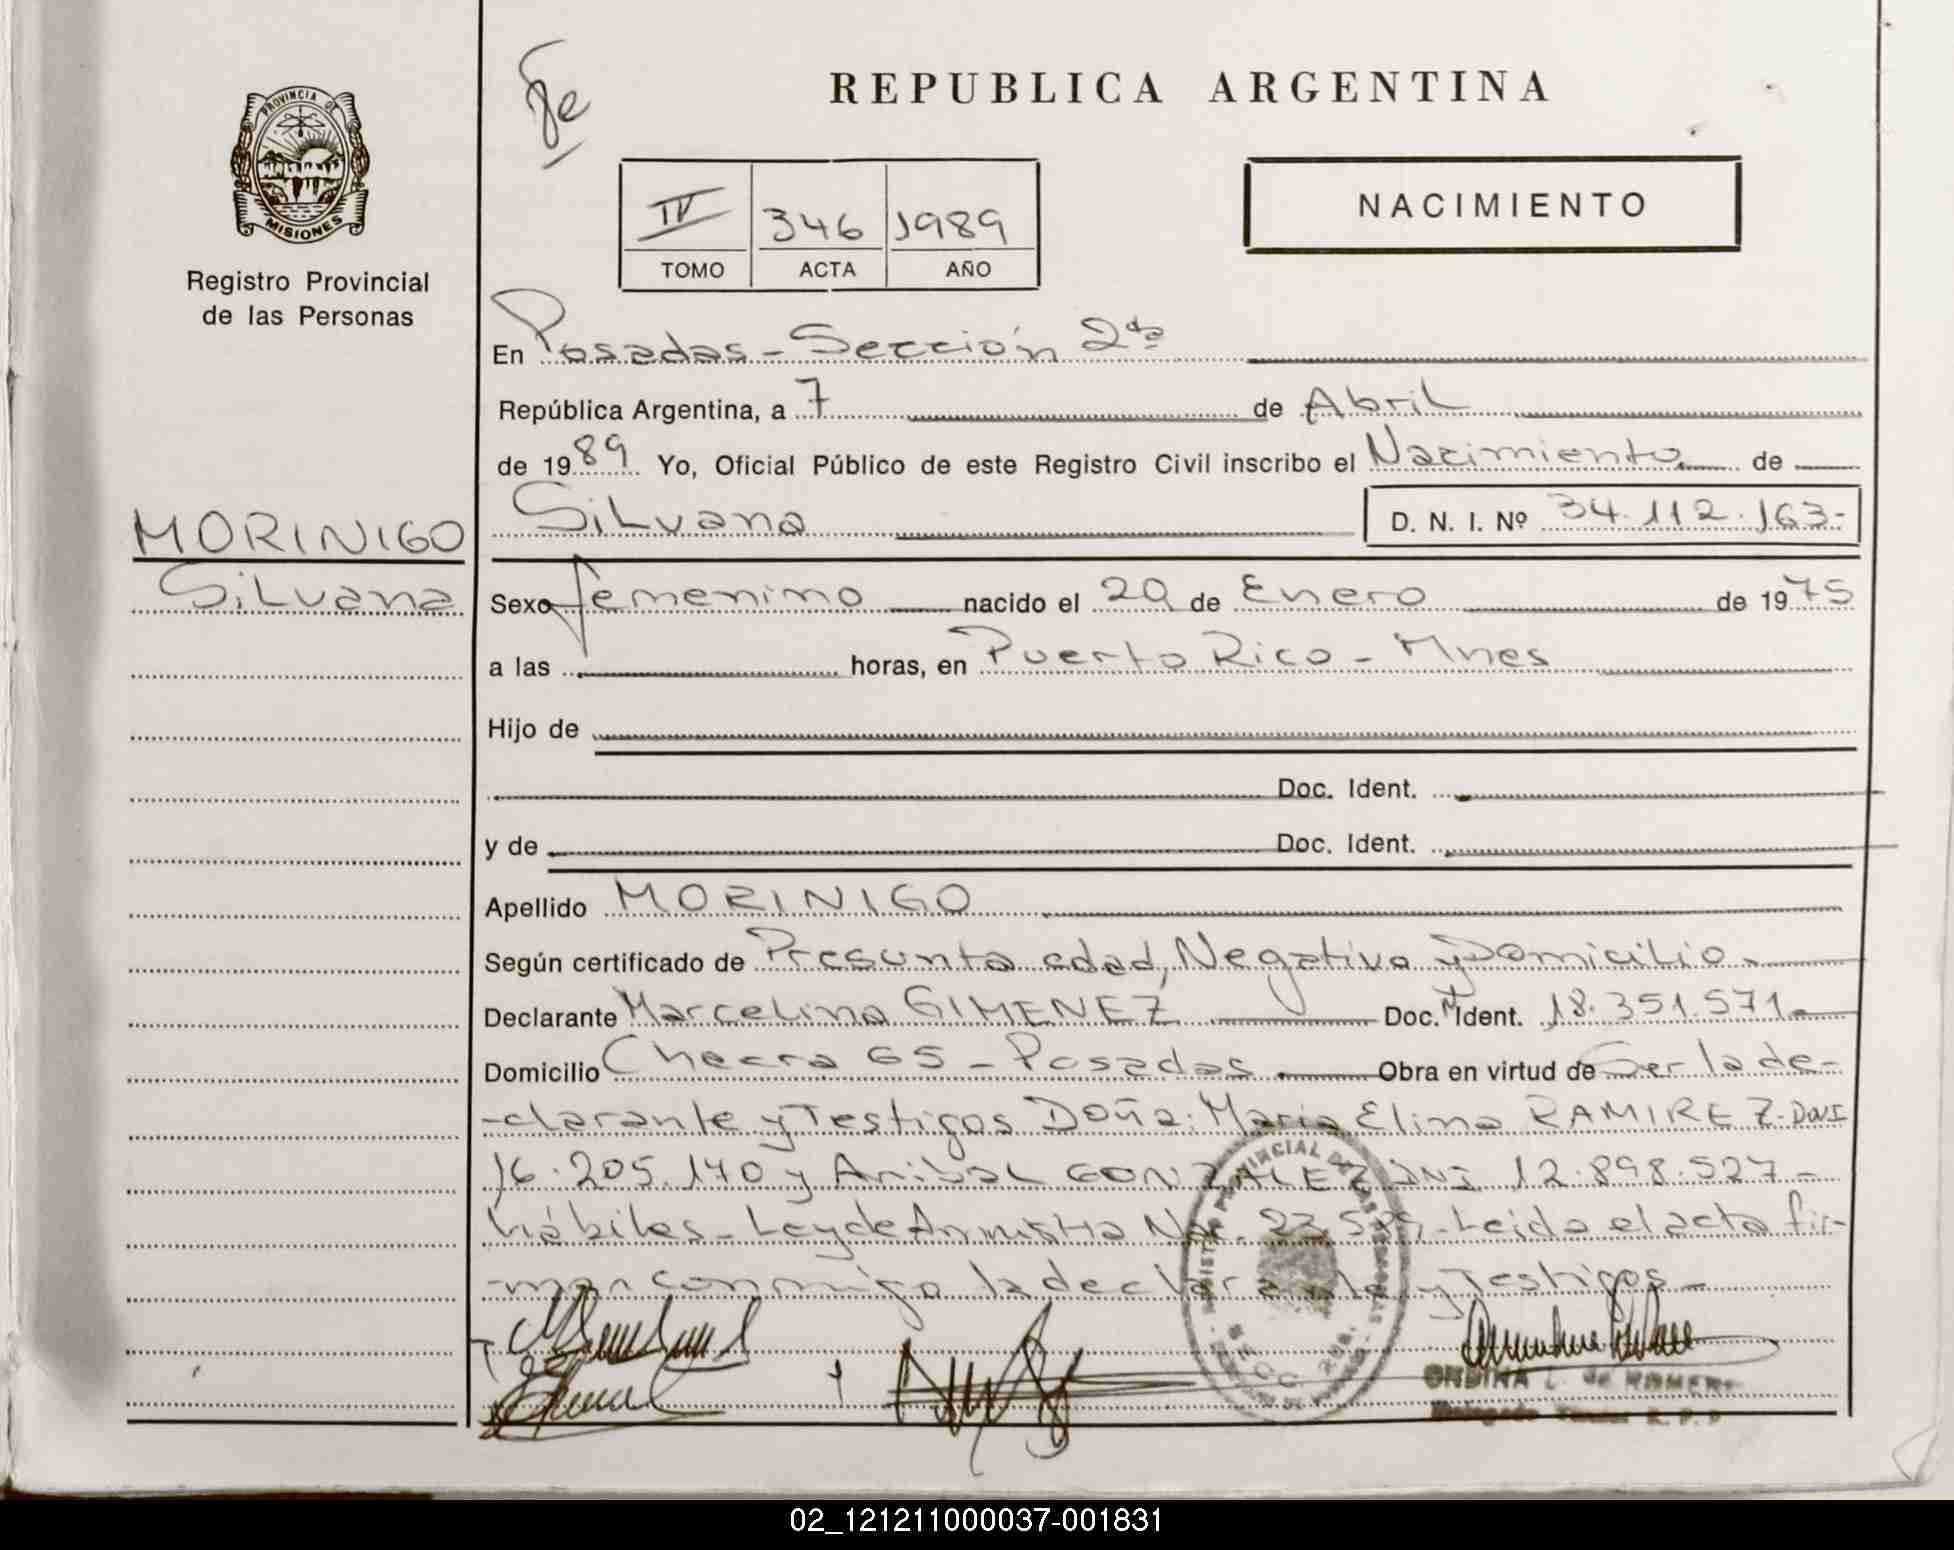 REPUBLICA ARGENTINA
PROVINCIA DE
MISIONES
Registro Provincial
de las Personas
IV 346 1989
TOMO ACTA AÑO
NACIMIENTO
En Posadas - Sección 2da
República Argentina, a 7 de Abril
de 1989 Yo, Oficial Público de este Registro Civil inscribo el Nacimiento de
MORINIGO
Silvana
Silvana D. N. I. Nº 34.112.163-
Sexo femenino nacido el 20 de Enero de 1975
a las horas, en Puerto Rico - Mnes
Hijo de
Doc. Ident.
y de Doc. Ident.
Apellido MORINIGO
Según certificado de Presunta edad, Negativo y Domicilio
Declarante Marcelina GIMENEZ Doc. Ident. 18.351.571
Domicilio Chacra 65 - Posadas Obra en virtud de Ser la de-
-clarante y Testigos Doña: Maria Elina RAMIREZ - DNI
16.205.170 y Anibal GONZALEZ DNI 12.898.527 -
hábiles - Ley de Amnistia Nro. - Leida el acta fir-
-man conmigo la declarante y Testigos -
ONDINA
02_121211000037-001831